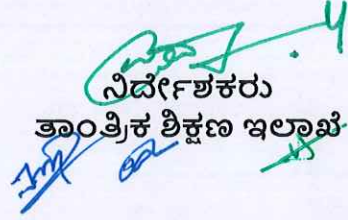 ನಿರ್ದೇಶಕರು
ತಾಂತ್ರಿಕ ಶಿಕ್ಷಣ ಇಲಾಖೆ